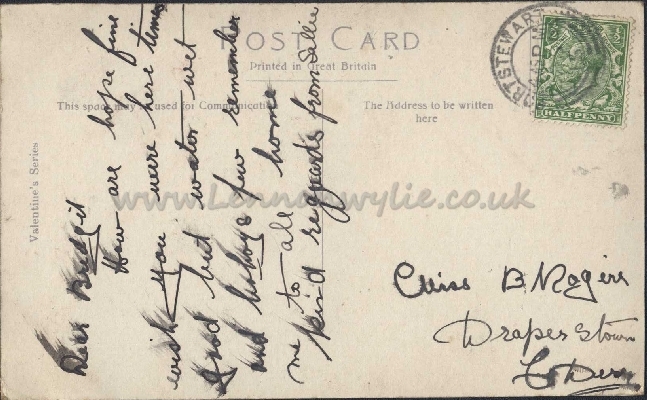 POST CARD
Printed in Great Britain
This space may be used for Communication
The Address to be written
here
Valentine's Series
PORTSTEWART
HALFPENNY
www.Lennonwylie.co.uk
Dear Bridgit
How are hope fine
wish you were here times
good but water wet
and few remember
me to all home
kind regards from Sellie
Miss B Rogers
Draperstown
Co Derry